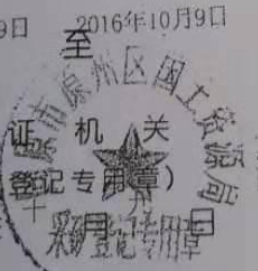 9日 2016年10月9日
至
证 机 关
登记专用章)
原州区国土资源局
月 日
采矿登记专用章